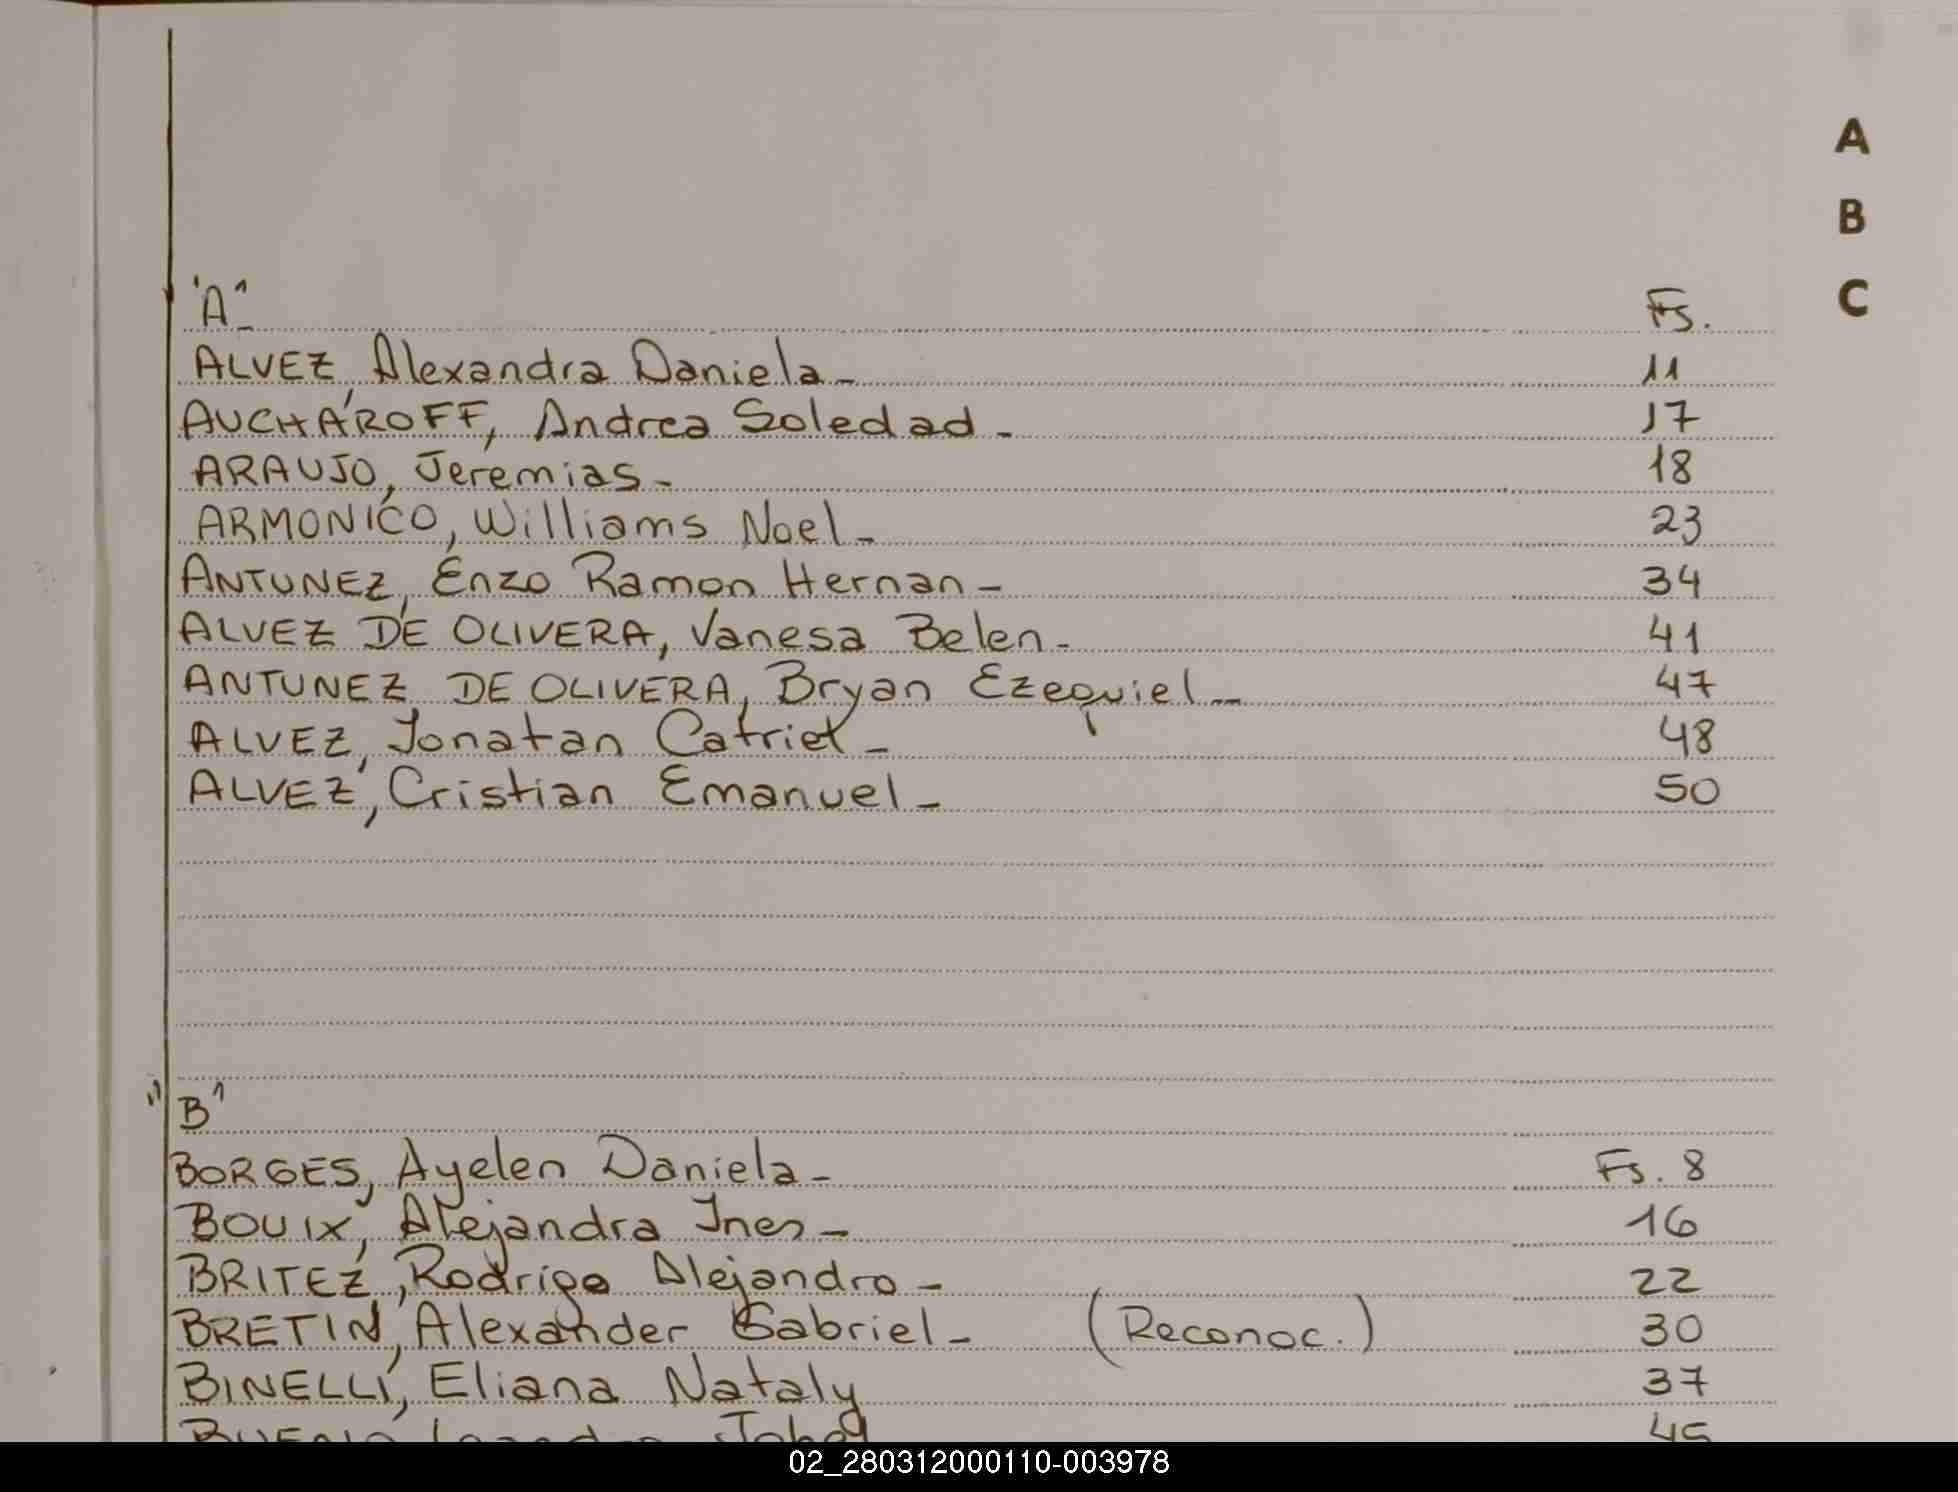 A
B
C
"A" Fs.
ALVEZ, Alexandra Daniela- 11
AUCHAROFF, Andrea Soledad- 17
ARAUJO, Jeremias- 18
ARMONICO, Williams Noel- 23
ANTUNEZ, Enzo Ramon Hernan- 34
ALVEZ DE OLIVERA, Vanesa Belen- 41
ANTUNEZ DE OLIVERA, Bryan Ezequiel- 47
ALVEZ, Jonatan Catriel- 48
ALVEZ, Cristian Emanuel- 50
"B"
BORGES, Ayelen Daniela- Fs. 8
BOUIX, Alejandra Ines- 16
BRITEZ, Rodrigo Alejandro- 22
BRETIN, Alexander Gabriel- (Reconoc.) 30
BINELLI, Eliana Nataly 37
BUENO 45
02_280312000110-003978